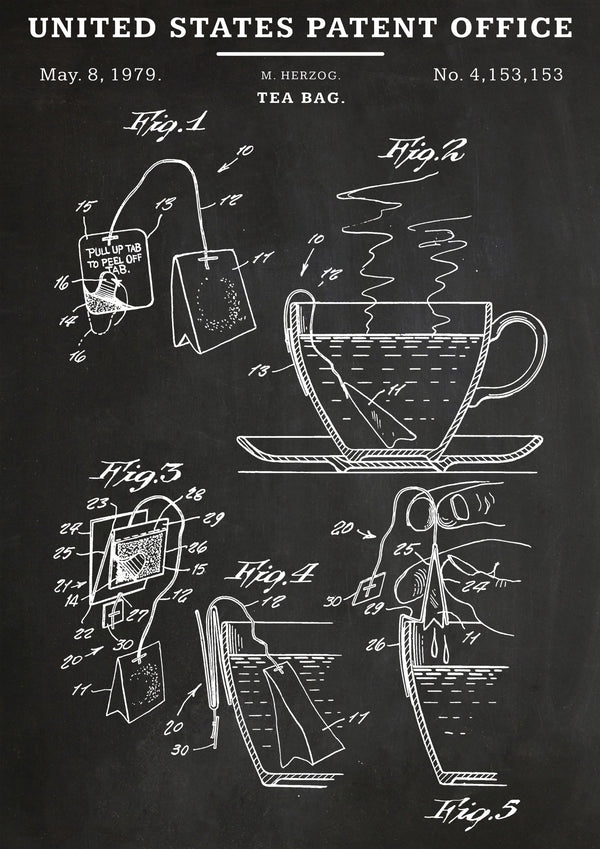 UNITED STATES PATENT OFFICE
May. 8, 1979.
M. HERZOG.
No. 4,153,153
TEA BAG.
Fig.1
10
15
13
12
"PULL UP TAB
TO PEEL OFF
TAB.
11
16
14
16
Fig.2
10
12
13
11
Fig.3
28
23
29
24
25
26
15
21
14
12
27
22
30
20
11
Fig.4
12
11
20
30
20
25
24
30
29
11
26
Fig.5